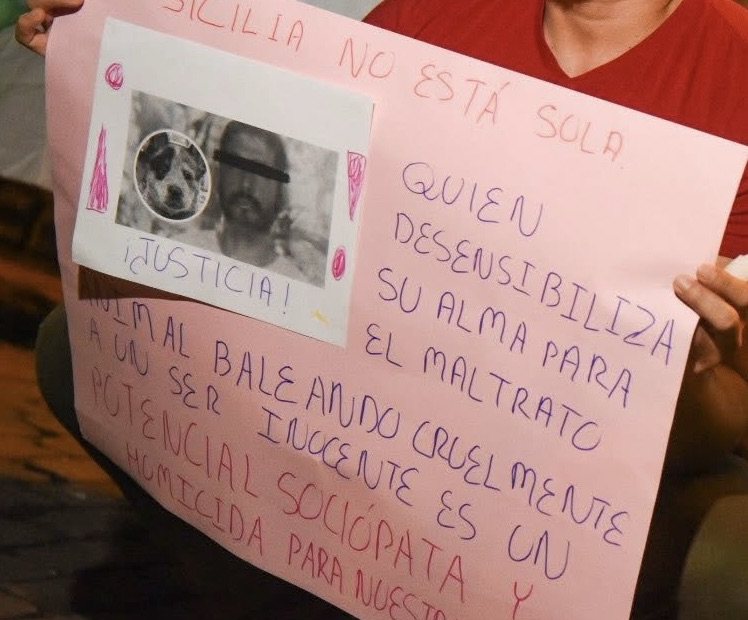 SICILIA NO ESTÁ SOLA
¡JUSTICIA!
QUIEN
DESENSIBILIZA
SU ALMA PARA
EL MALTRATO
ANIMAL BALEANDO CRUELMENTE
A UN SER INOCENTE ES UN
POTENCIAL SOCIÓPATA Y
HOMICIDA PARA